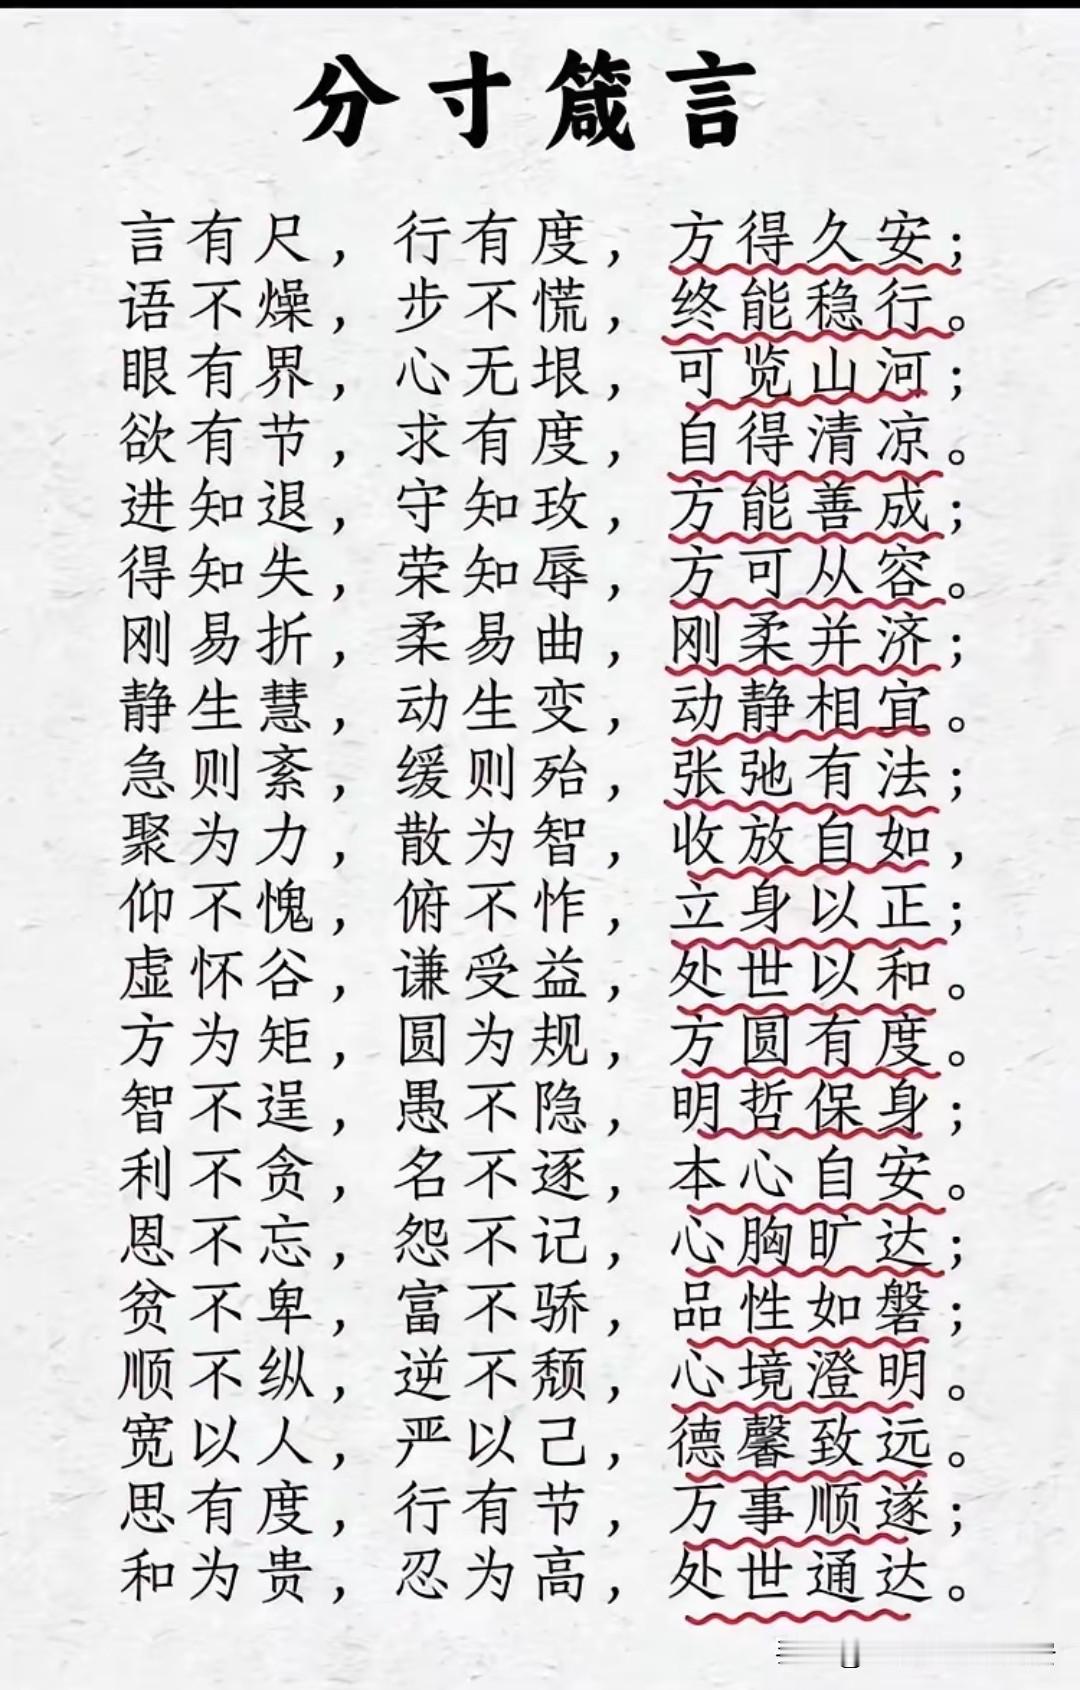 分寸箴言
言有尺，行有度，方得久安；
语不燥，步不慌，终能稳行。
眼有界，心无垠，可览山河；
欲有节，求有度，自得清凉。
进知退，守知玫，方能善成；
得知失，荣知辱，方可从容。
刚易折，柔易曲，刚柔并济；
静生慧，动生变，动静相宜。
急则紊，缓则殆，张弛有法；
聚为力，散为智，收放自如，
仰不愧，俯不怍，立身以正；
虚怀谷，谦受益，处世以和。
方为矩，圆为规，方圆有度。
智不逞，愚不隐，明哲保身；
利不贪，名不逐，本心自安。
恩不忘，怨不记，心胸旷达；
贫不卑，富不骄，品性如磐；
顺不纵，逆不颓，心境澄明。
宽以人，严以己，德馨致远。
思有度，行有节，万事顺遂；
和为贵，忍为高，处世通达。